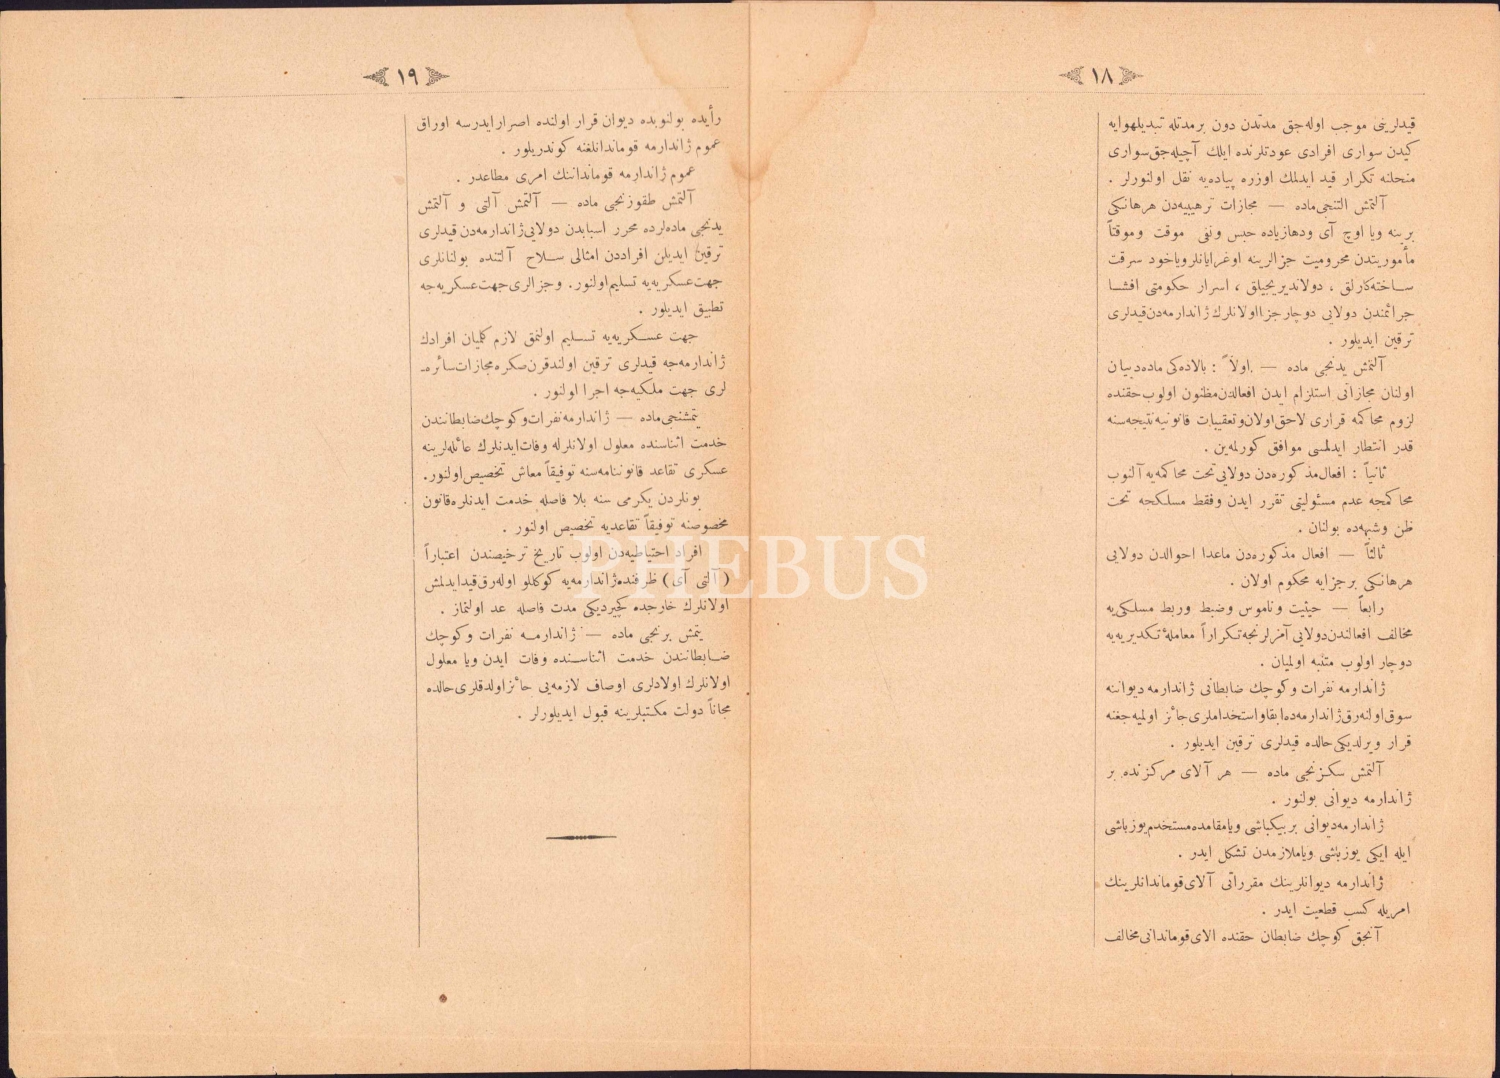 ١٨
قیدلرینی موجب اوله‌جق مدتدن دون برمدتله تبدیلهوایه
کیدن سواری افرادی عودتلرنده ایلك آچیله‌جق سواری
منحلنه تکرار قید ایدلمك اوزره پیاده‌یه نقل اولنورلر .
آلتمش التنجی ماده — مجازات ترهیبیه‌دن هرهانکی
برینه ویا اوچ آی ودهازیاده حبس ونفی موقت وموقتاً
مأموریتدن محرومیت جزالرینه اوغرایانلرویاخود سرقت
ساخته‌کارلق ، دولاندیریجیلق ، اسرار حکومتی افشا
جرائمندن دولایی دوچارجزااولانلرك ژاندارمه‌دن‌قیدلری
ترقین ایدیلور .
آلتمش یدنجی ماده — اولاً : بالاده‌کی ماده‌ده‌بیان
اولنان مجازاتی استلزام ایدن افعالدن‌مظنون اولوب‌حقنده
لزوم محاکمه قراری لاحق‌اولان‌وتعقیبات قانونیه‌نتیجه‌سنه
قدر انتظار ایدلمسی موافق کورلمه‌ین .
ثانیاً : افعال‌مذکوره‌دن دولایی‌تحت محاکمه‌یه آلنوب
محاکمجه عدم مسئولیتی تقرر ایدن وفقط مسلکجه تحت
ظن وشبهه‌ده بولنان .
ثالثاً — افعال مذکوره‌دن ماعدا احوالدن دولایی
هرهانکی برجزایه محکوم اولان .
رابعاً — حیثیت وناموس وضبط وربط مسلکی‌یه
مخالف افعالندن‌دولایی آمرلرنجه‌تکراراً معاملهٔ تکدیریه‌یه
دوچار اولوب متنبه اولمیان .
ژاندارمه نفرات وکوچك ضابطانی ژاندارمه دیواننه
سوق‌اولنه‌رق‌ژاندارمه‌ده‌ابقاواستخداملری‌جائز اولمیه‌جغنه
قرار ویرلدیکی‌حالده قیدلری ترقین ایدیلور .
آلتمش سکزنجی ماده — هر آلای مرکزنده بر
ژاندارمه دیوانی بولنور .
ژاندارمه‌دیوانی بربیکباشی ویامقامده‌مستخدم‌یوزباشی
ایله ایکی یوزباشی ویاملازمدن تشکل ایدر .
ژاندارمه دیوانلرینك مقرراتی آلای‌قوماندانلرینك
امریله کسب قطعیت ایدر .
آنجق کوچك ضابطان حقنده الای‌قوماندانی‌مخالف
١٩
رأیده بولنوبده دیوان قرار اولنده اصرارایدرسه اوراق
عموم ژاندارمه قوماندانلغنه کوندریلور .
عموم ژاندارمه قومانداننك امری مطاعدر .
آلتمش طقوزنجی ماده — آلتمش آلتی و آلتمش
یدنجی ماده‌لرده محرر اسبابدن دولایی‌ژاندارمه‌دن‌قیدلری
ترقین ایدیلن افراددن امثالی سلاح آلتنده بولنانلری
جهت‌عسکریه‌یه تسلیم‌اولنور. وجزالری‌جهت‌عسکریه‌جه
تطبیق ایدیلور .
جهت عسکریه‌یه تسلیم اولنمق لازم کلمیان افرادك
ژاندارمه‌جه قیدلری ترقین اولندقدن‌صکره‌مجازات‌سائره‌ـ
لری جهت ملکیه‌جه اجرا اولنور .
یتمشنجی‌ماده — ژاندارمه‌نفرات‌وکوچك‌ضابطانندن
خدمت اثناسنده معلول اولانلرله وفات‌ایدنلرك عائله‌لرینه
عسکری تقاعد قانوننامه‌سنه توفیقاً معاش تخصیص‌اولنور.
بونلردن یکرمی سنه بلا فاصله خدمت ایدنلره‌قانون
مخصوصنه توفیقاً تقاعدیه تخصیص اولنور .
افراد احتیاطیه‌دن اولوب تاریخ ترخیصندن اعتباراً
( آلتی آی ) ظرفنده‌ژاندارمه‌یه کوکللو اوله‌رق‌قیدایدلمش
اولانلرك خارجده کچیردیکی مدت فاصله عد اولنماز .
یتمش برنجی ماده — ژاندارمه نفرات وکوچك
ضابطانندن خدمت اثناسنده وفات ایدن ویا معلول
اولانلرك اولادلری اوصاف لازمه‌یی حائزاولدقلری‌حالده
مجاناً دولت مکتبلرینه قبول ایدیلورلر .
PHEBUS